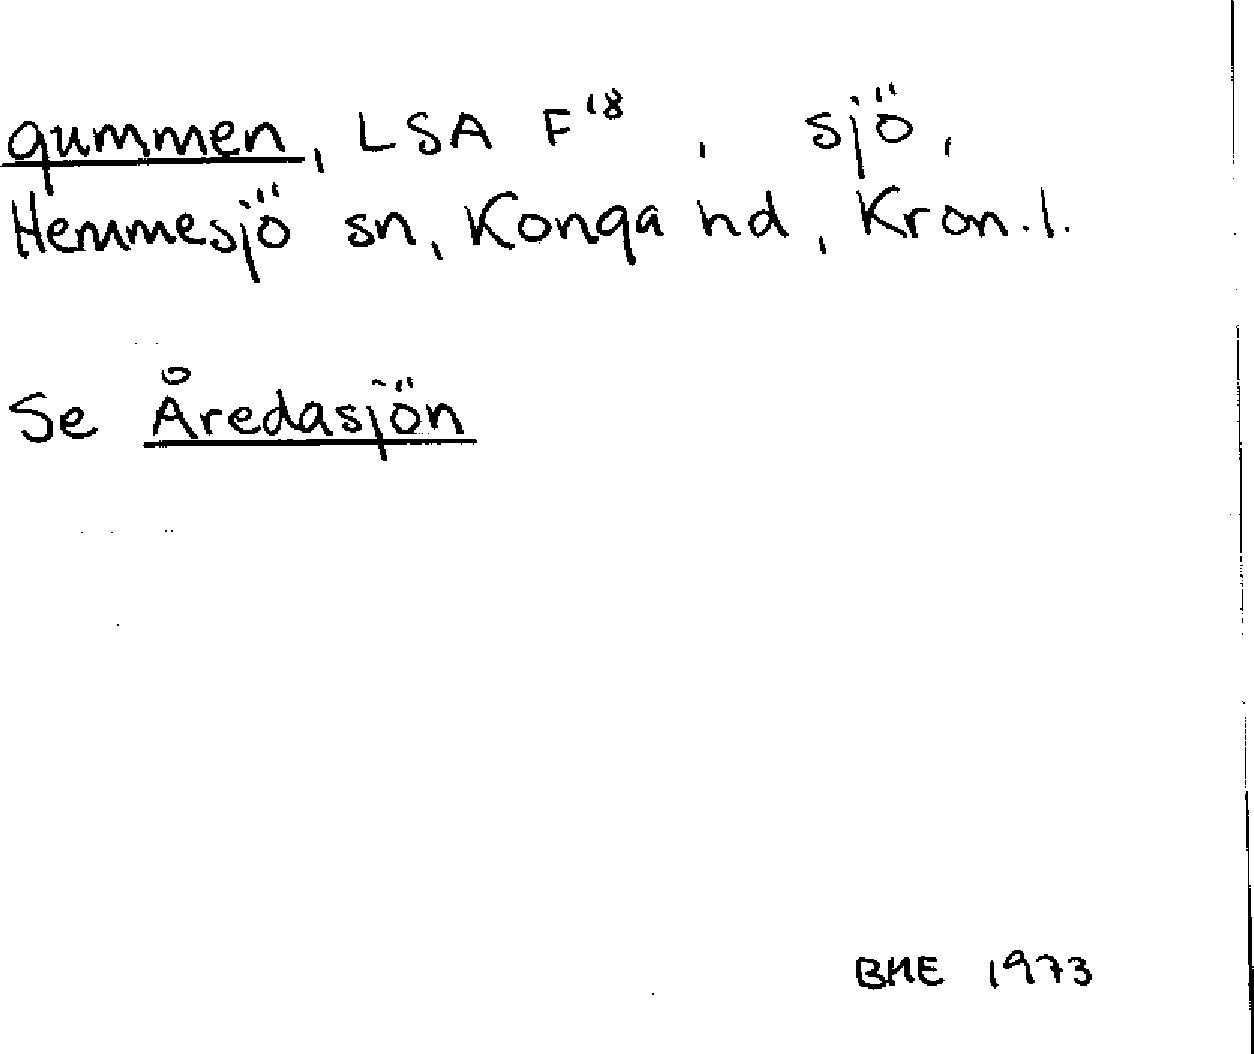 gummen, LSA F18, sjö,
Hemmesjö sn, Konga hd, Kron.l.
Se Åredasjön
BME 1973